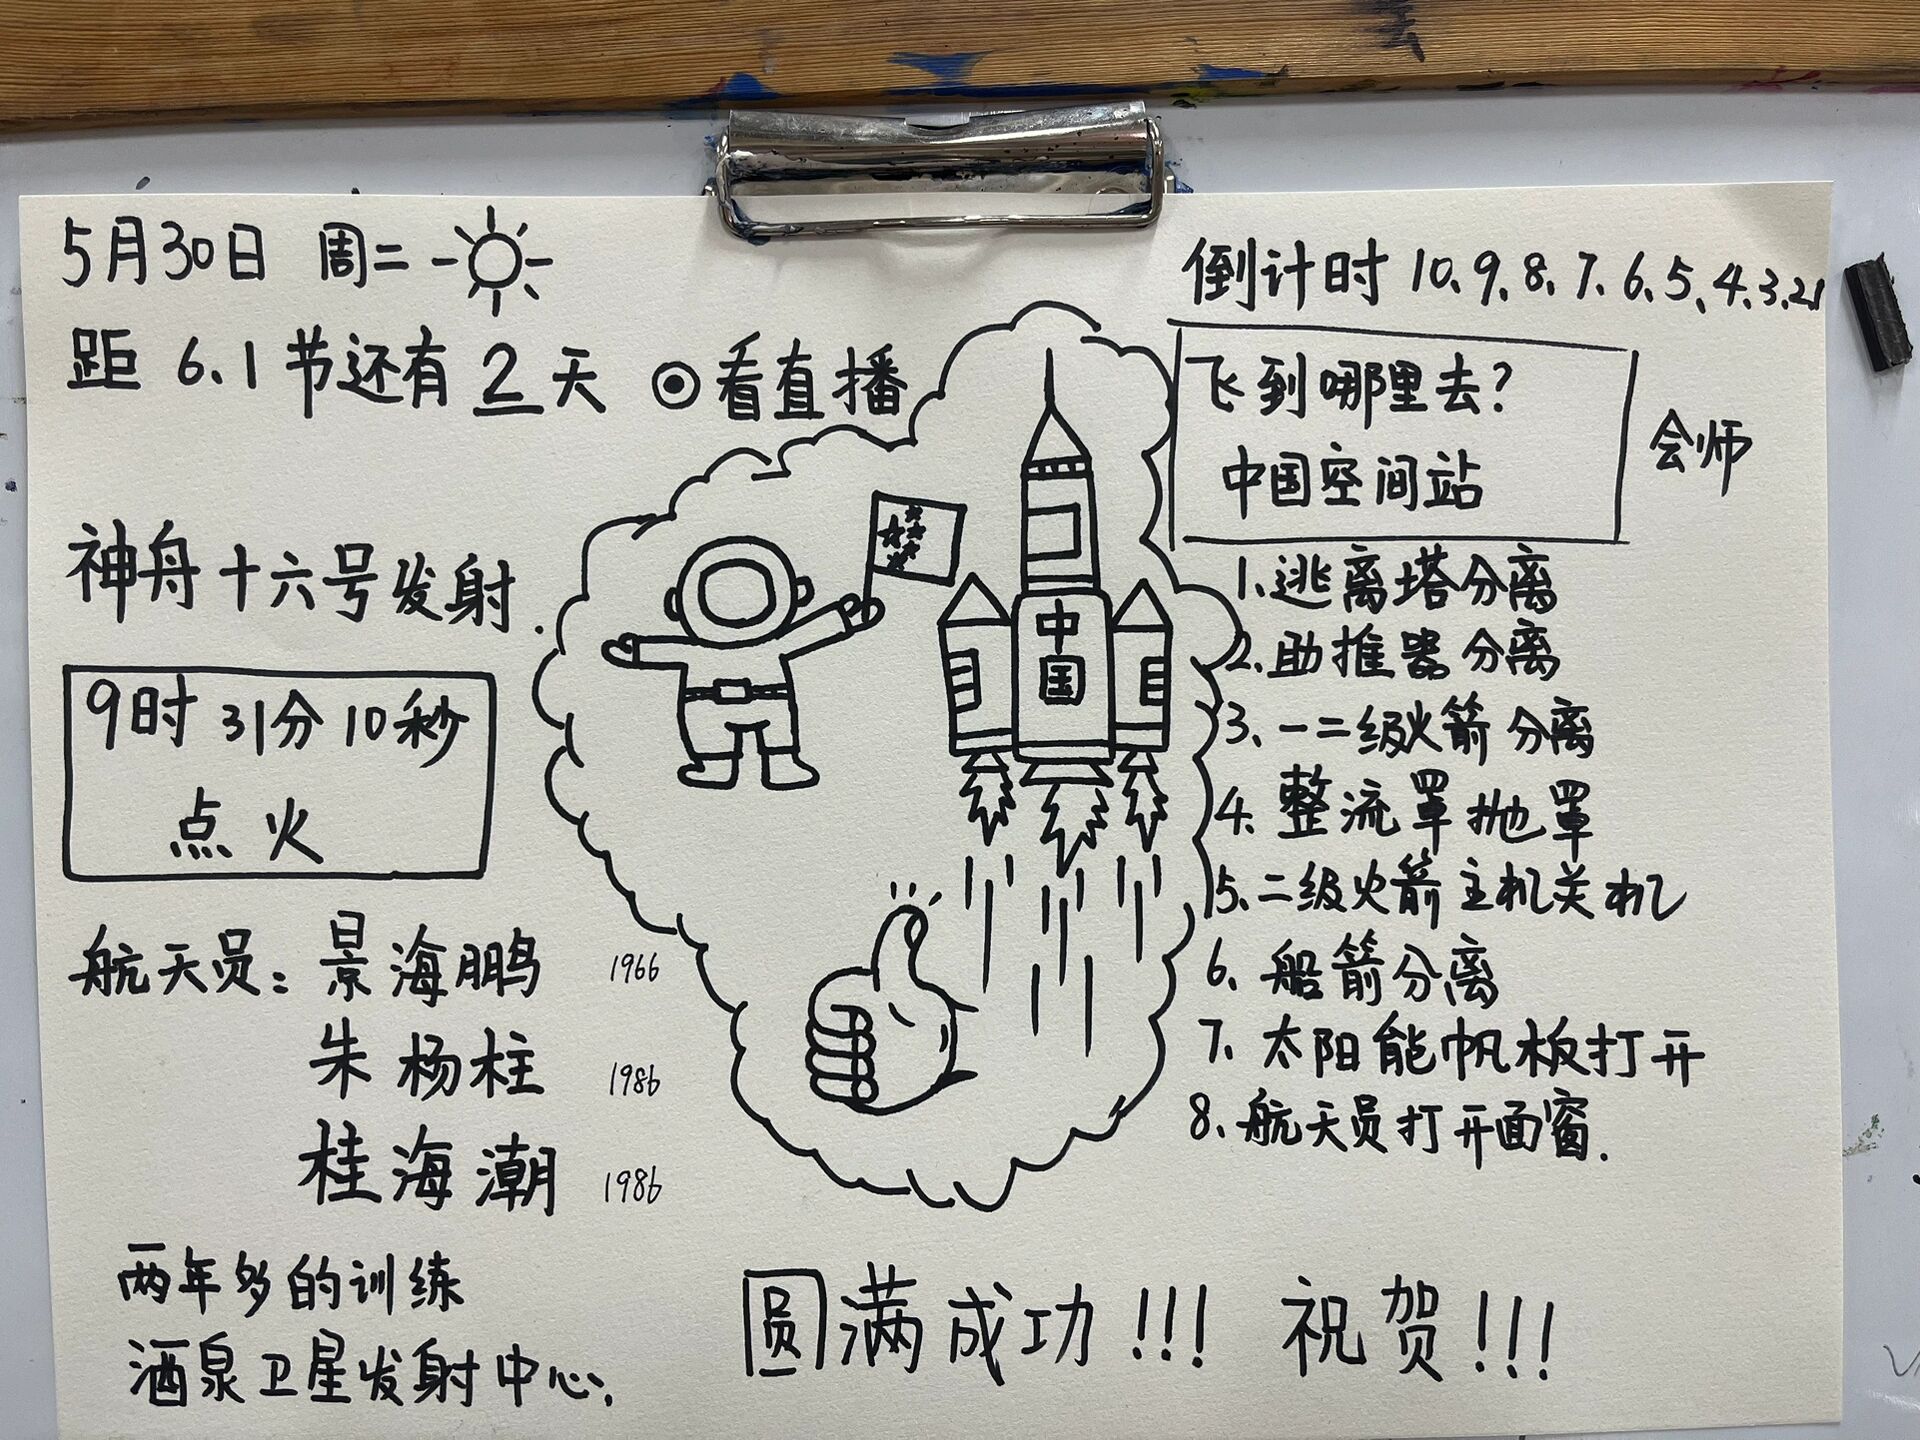 5月30日 周二
距 6.1节还有2天 ⊙看直播
神舟十六号发射.
9时31分10秒
点火
航天员：景海鹏 1966
朱杨柱 1986
桂海潮 1986
两年多的训练
酒泉卫星发射中心.
中国
倒计时 10、9、8、7、6、5、4、3、2、1
飞到哪里去？
中国空间站
会师
1、逃离塔分离
2、助推器分离
3、一二级火箭分离
4、整流罩抛罩
5、二级火箭主机关机
6、船箭分离
7、太阳能帆板打开
8、航天员打开面窗.
圆满成功!!! 祝贺!!!